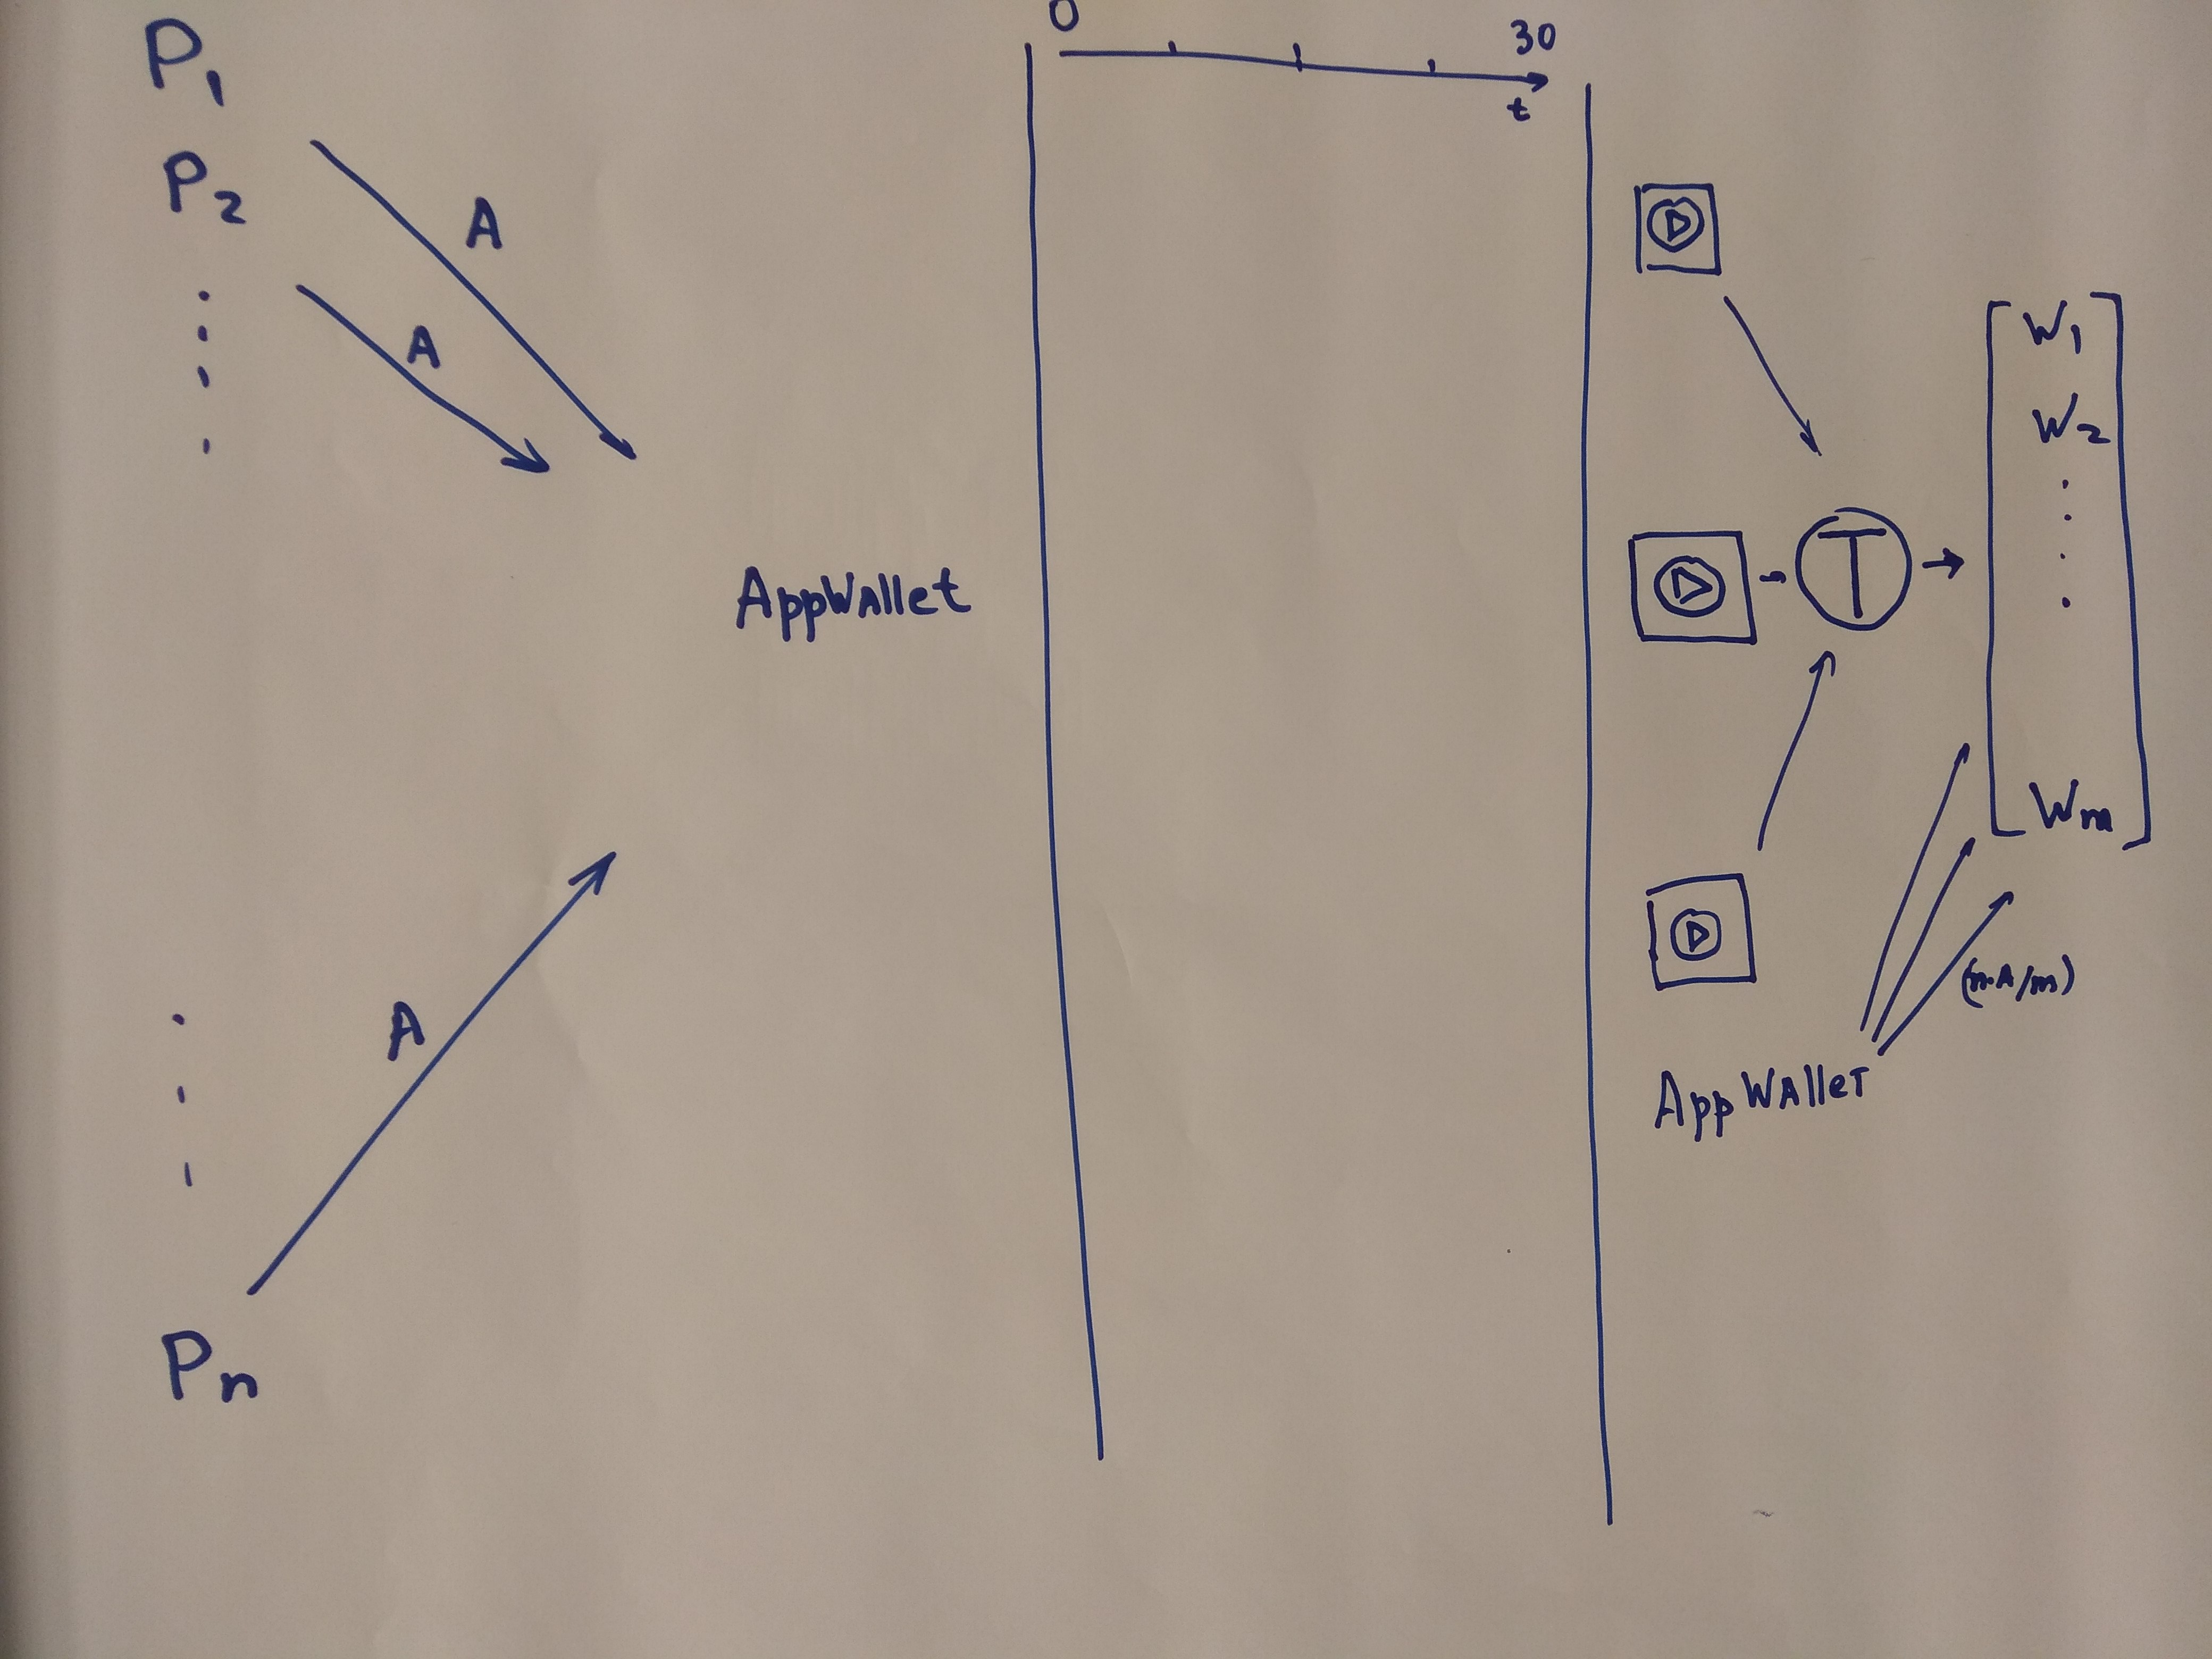 P1
P2
A
A
AppWallet
A
Pn
0
30
t
T
W1
W2
Wm
(n.A/m)
AppWallet